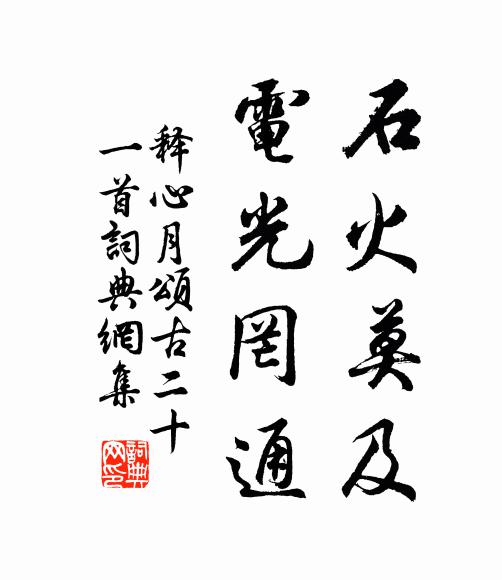 石火莫及
電光罔通
釋心月頌古二十
一首詞典網集
詞典網印